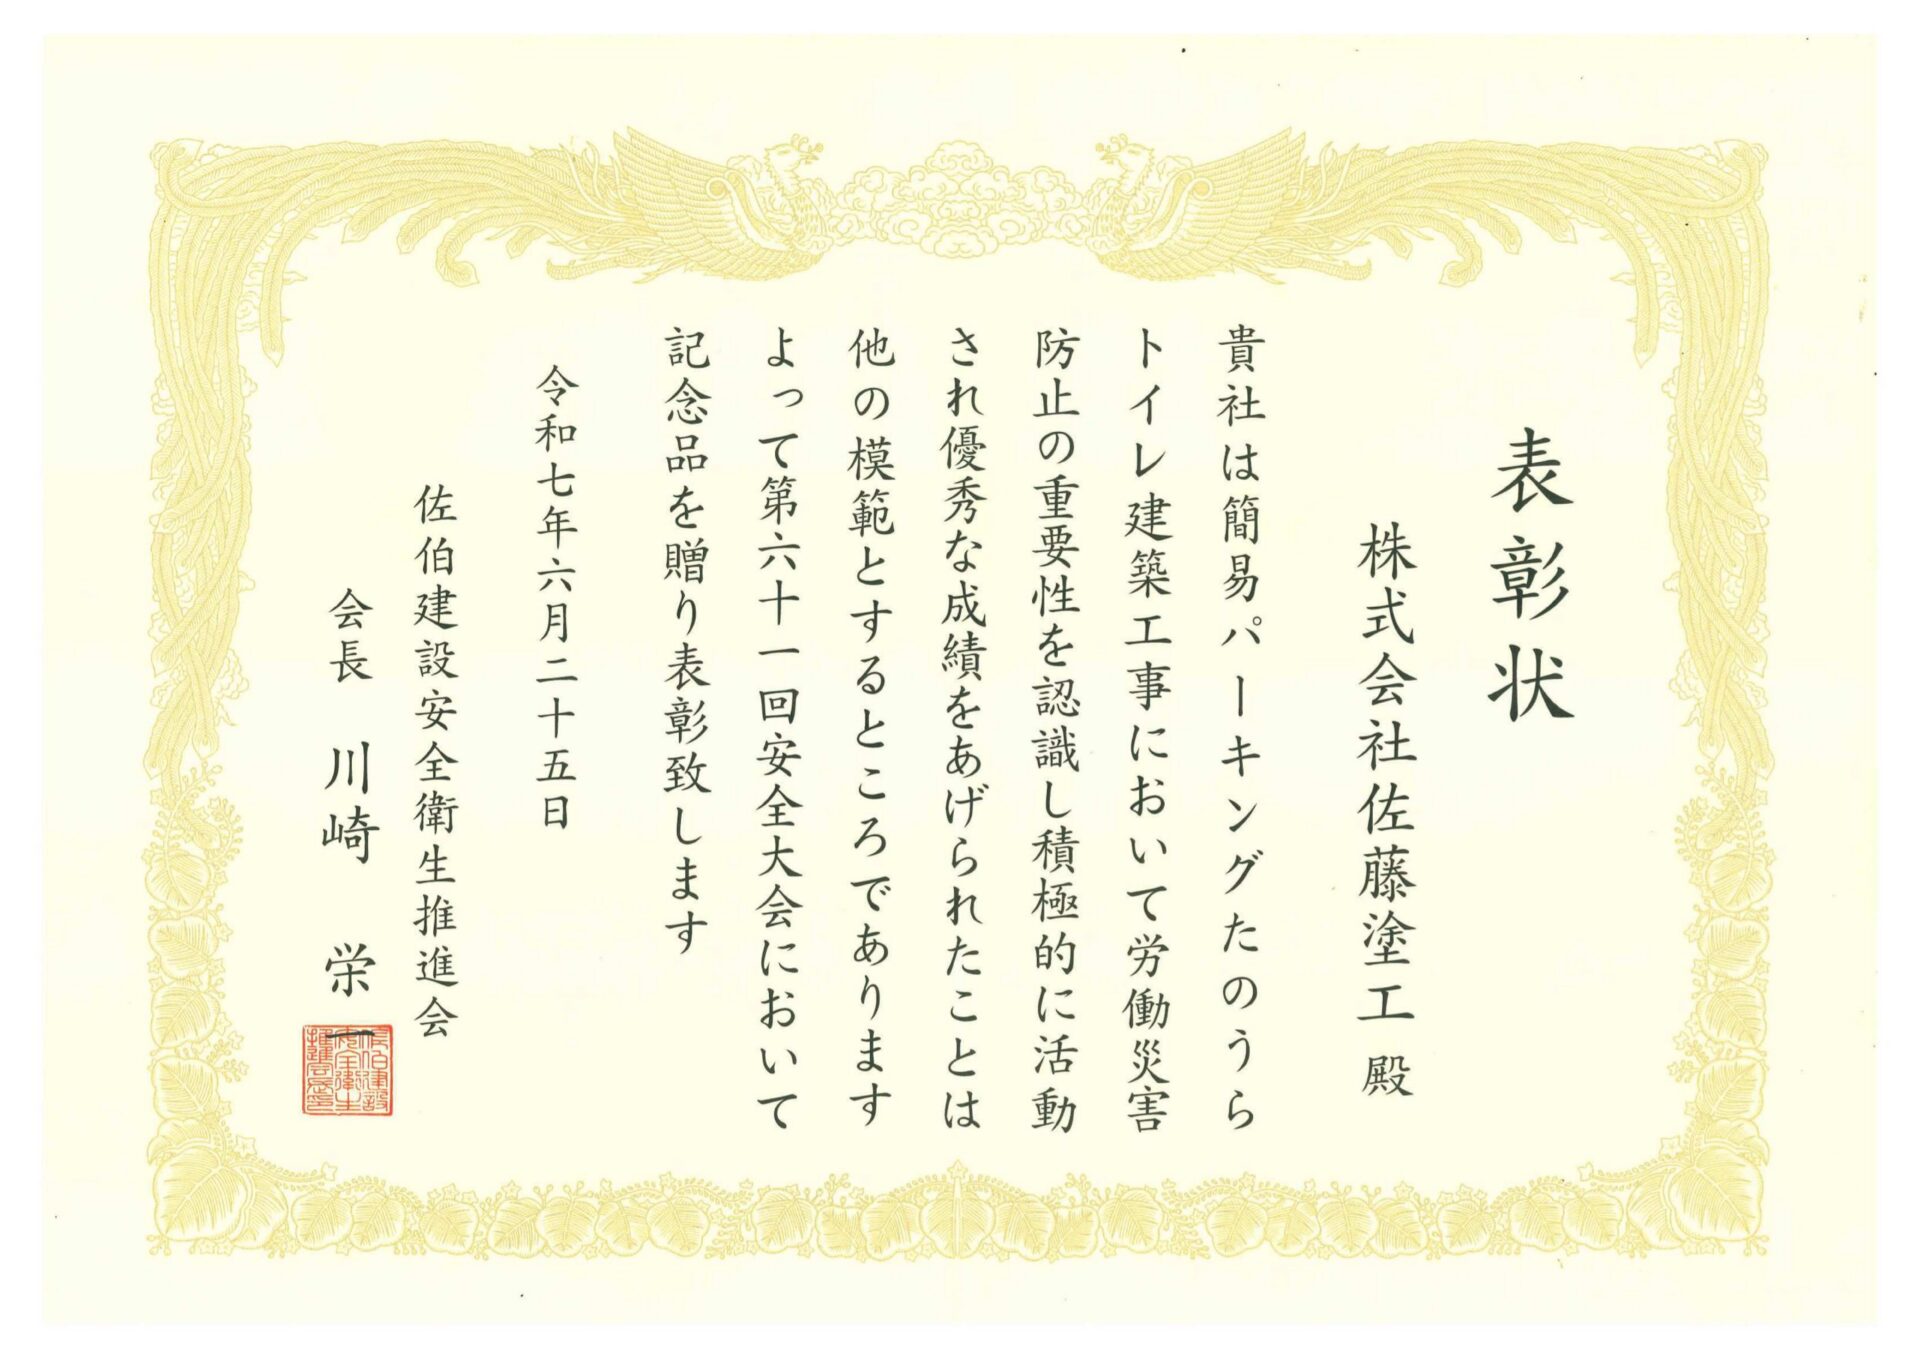 表彰状
株式会社佐藤塗工 殿
貴社は簡易パーキングたのうら
トイレ建築工事において労働災害
防止の重要性を認識し積極的に活動
され優秀な成績をあげられたことは
他の模範とするところであります
よって第六十一回安全大会において
記念品を贈り表彰致します
令和七年六月二十五日
佐伯建設安全衛生推進会
会長 川崎 栄一